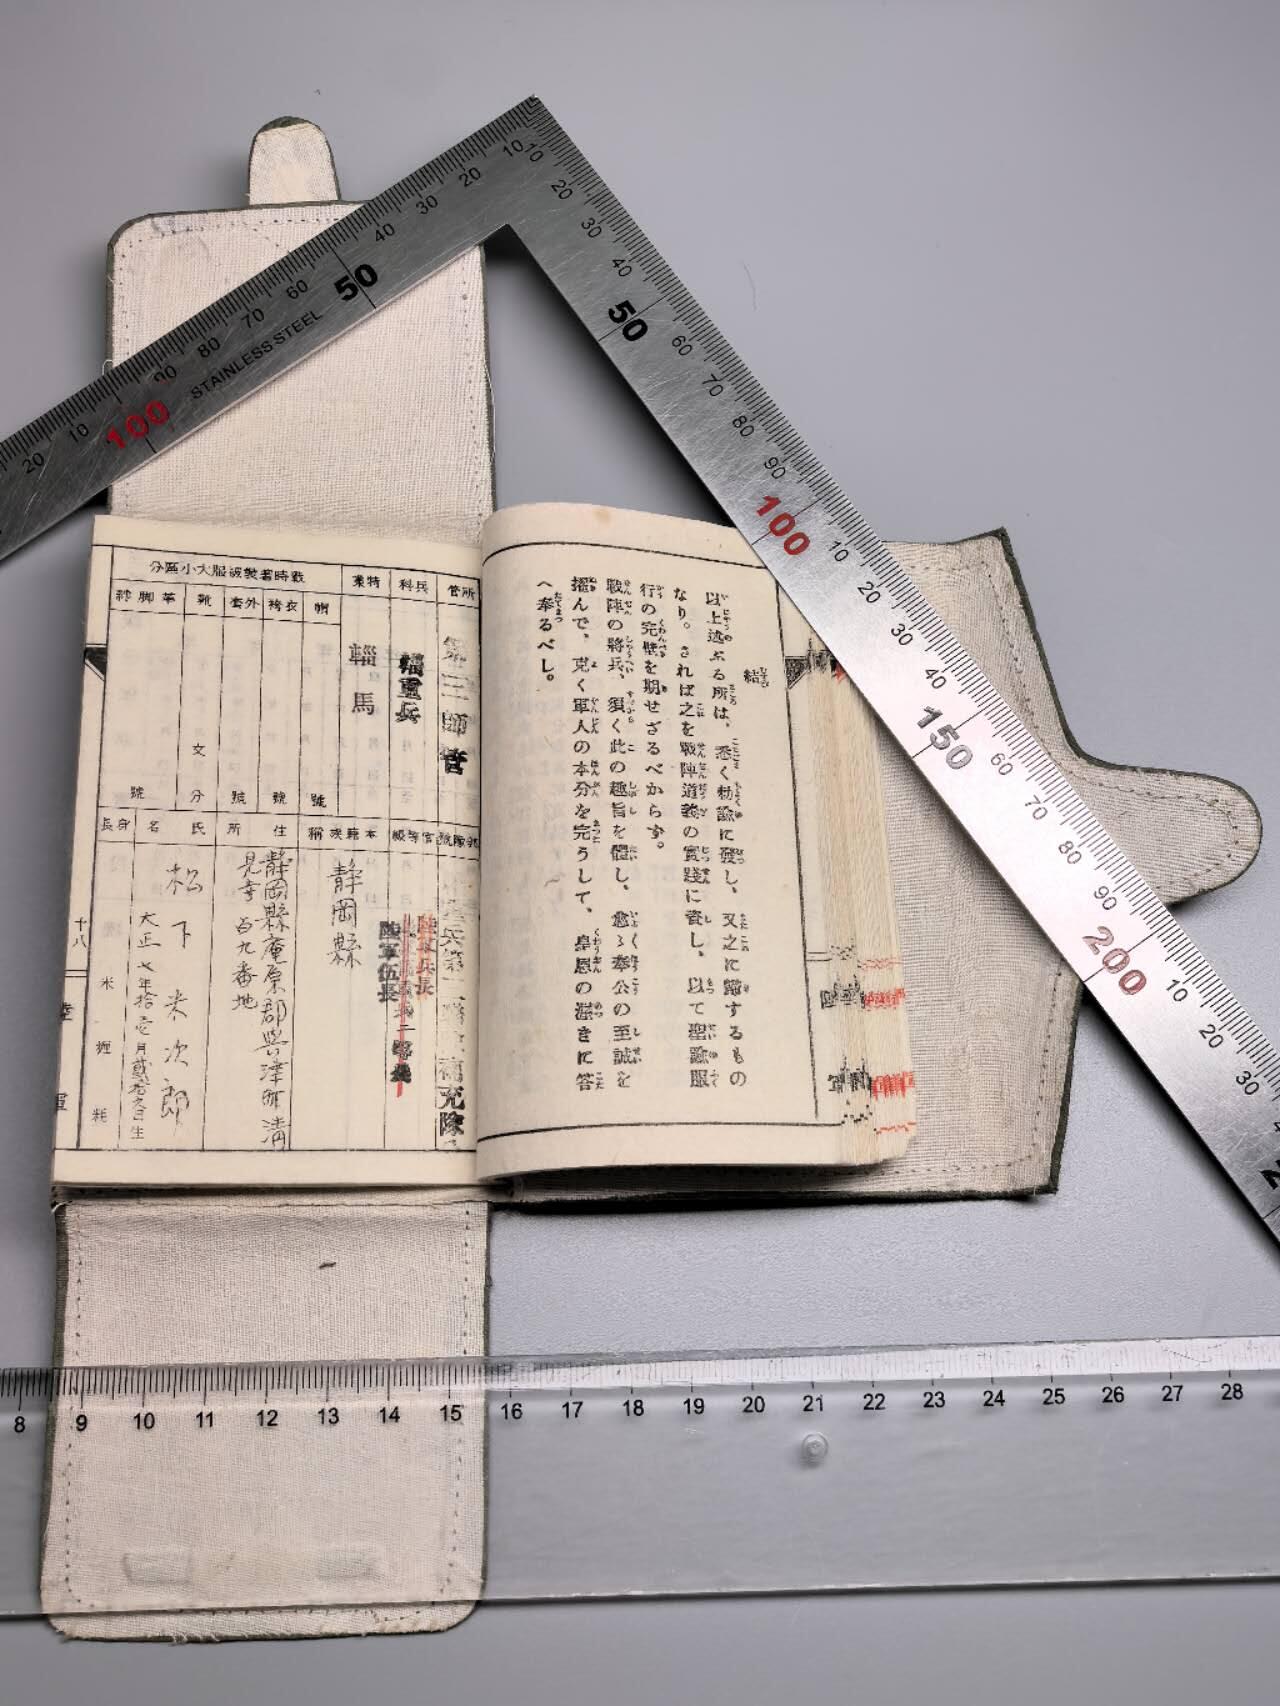 結
以上述ぶる所は、悉く勅諭に發し、又之に歸するもの
なり。されば之を戰陣道義の實踐に資し、以て聖諭服
行の完璧を期せざるべからず。
戰陣の將兵、須く此の趣旨を體し、愈〻奉公の至誠を
擢んで、克く軍人の本分を完うして、皇恩の渥きに答
へ奉るべし。
所管
第三師管
兵科
輜重兵
特業
輜馬
戰時著裝被服大小區分
帽
號
衣袴
號
外套
號
靴
文
分
革脚絆
號
官等級
陸軍兵長
陸軍伍長
本籍族稱
靜岡縣
住所
靜岡縣庵原郡興津町清
見寺百九番地
氏名
松下米次郎
大正七年拾壱月貳拾九日生
身長
米
糎
粍
十八
補充隊
STAINLESS STEEL
10 20 30 40 50 60 70 80 90 100 10 20
10 20 30 40 50 60 70 80 90 100 10 20 30 40 150 60 70 80 90 200 10 20 30
8 9 10 11 12 13 14 15 16 17 18 19 20 21 22 23 24 25 26 27 28